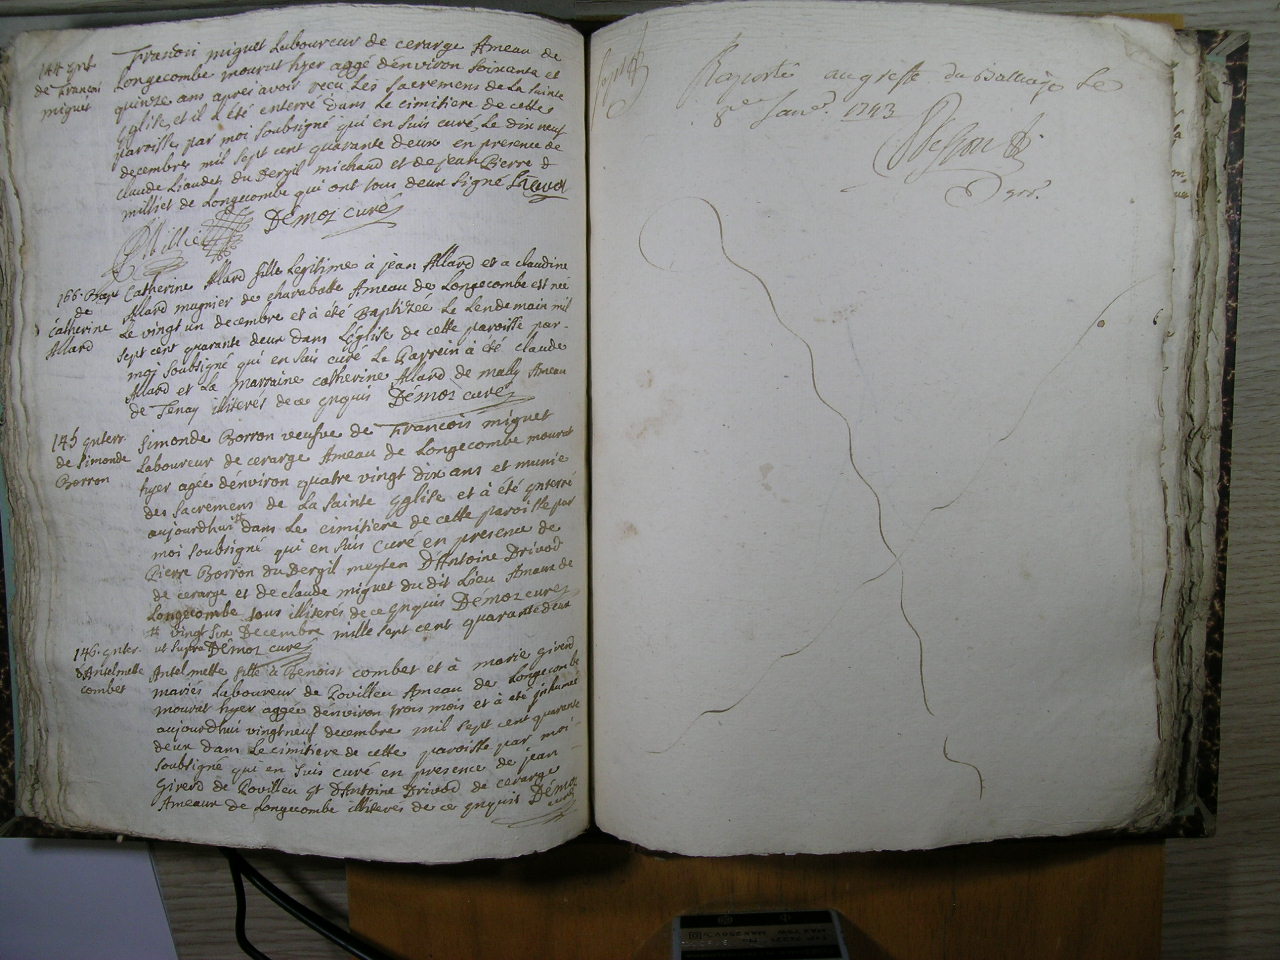 144 ent.
de Francoi
miguet
Francoi miguet Laboureur de cerarge Ameau de
Longecombe mourut hyer aggé d'environ soixante et
quinze ans apres avoir recu Les sacremens de La sainte
Eglise, et il a été enterré dans Le cimitiere de cette
paroisse par moi soubsigné qui en suis curé, Le dix neuf
decembre mil sept cent quarante deux en presence de
claude Liaudet du Dergil michaud et de jean Pierre
milliet de Longecombe qui ont tous deux signé
Milliet Démoz curé
166. Bapt
de
Catherine
Allard
Catherine Allard fille Legitime à jean Allard et a claudine
Allard mugnier de charabotte Ameau de Longecombe est née
Le vingt un decembre et à été Baptizée Le Lendemain mil
sept cent quarante deux dans L'Eglise de cette paroisse par
moi soubsigné qui en suis curé Le Parrein à été claude
Allard et La marraine catherine Allard de Ameau
de Tenay illiterés de ce ynquis Démoz curé
145 ynterr.
de simonde
Borron
Simonde Borron veufve de Francois miguet
Laboureur de cerarge Ameau de Longecombe mourut
hyer agée d'environ quatre vingt dix ans et munie
des sacremens de La sainte yglise et à été ynterré
aujourdhui # dans Le cimitiere de cette paroisse par
moi soubsigné qui en suis curé en presence de
Pierre Borron du Dergil meyten D'Antoine Drivod
de cerarge et de claude miguet du dit Lieu Ameaux de
Longecombe tous illiterés de ce ynquis Démoz curé
# vingt six Decembre mille sept cent quarante deux
ut supra Démoz curé
146. ynter.
d'Antelmette
combet
Antelmette fille à Benoist combet et à marie girerd
mariés Laboureur de Povilleu Ameau de Longecombe
mourut hyer aggée d'environ trois mois et à été inhumée
aujourdhui vingt neuf decembre mil sept cent quarante
deux dans Le cimitiere de cette paroisse par moi
soubsigné qui en suis curé en presence de jean
Girerd de Povilleu et d'Antoine Drivod de cerarge
Ameaux de Longecombe illiterés de ce ynquis Démoz
curé
Raporté au greffe du Balliage Le
8e Janv. 1743